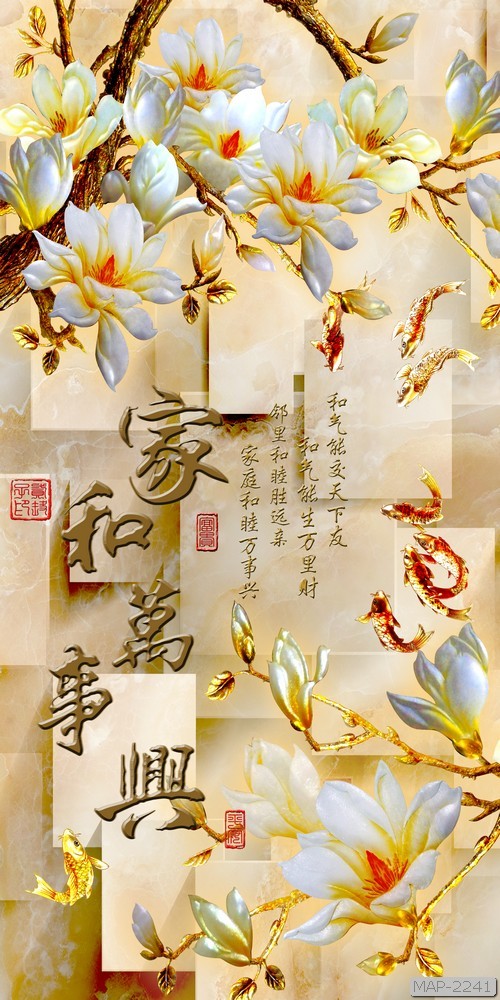 家和萬事興
和气能交天下友
和气能生万里财
邻里和睦胜远亲
家庭和睦万事兴
MAP-2241